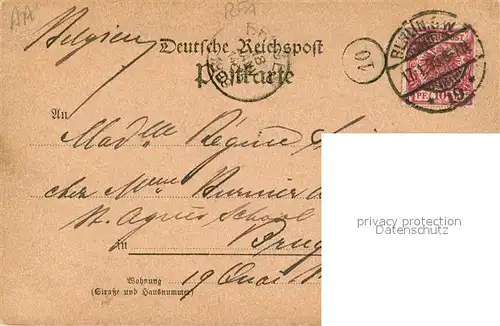 AA
RFA
Belgien
Deutsche Reichspost
Postkarte
10
BERLIN S.W.
19
An
Mad'lle Régine
chez Mme Burnier
St. Agnes School
in Brug
Wohnung
(Straße und Hausnummer)
19 Quai
privacy protection
Datenschutz